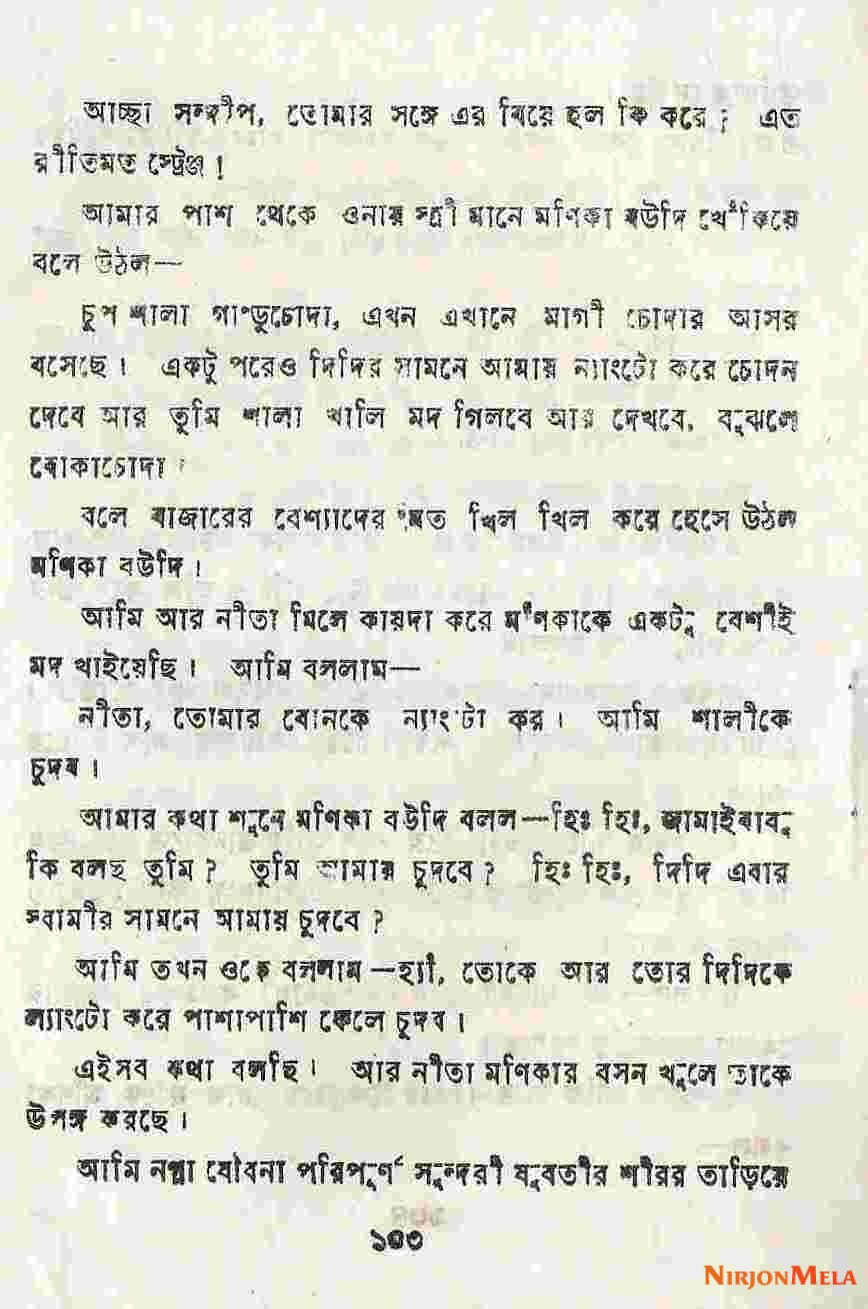 আচ্ছা সন্দীপ, তোমার সঙ্গে এর বিয়ে হল কি করে? এত
রীতিমত স্ট্রেঞ্জ!
আমার পাশ থেকে ওনার স্ত্রী মানে মণিকা বউদি খেঁকিয়ে
বলে উঠল—
চুপ শালা গাণ্ডুচোদা, এখন এখানে মাগী চোদার আসর
বসেছে। একটু পরেও দিদির সামনে আমায় ন্যাংটো করে চোদন
দেবে আর তুমি শালা খালি মদ গিলবে আর দেখবে, বুঝলে
বোকাচোদা?
বলে বাজারের বেশ্যাদের মত খিল খিল করে হেসে উঠল
মণিকা বউদি।
আমি আর নীতা মিলে কায়দা করে মণিকাকে একটু বেশীই
মদ খাইয়েছি। আমি বললাম—
নীতা, তোমার বোনকে ন্যাংটো কর। আমি শালীকে
চুদব।
আমার কথা শুনে মণিকা বউদি বলল—হিঃ হিঃ, জামাইবাবু
কি বলছ তুমি? তুমি আমায় চুদবে? হিঃ হিঃ, দিদি এবার
স্বামীর সামনে আমায় চুদবে?
আমি তখন ওকে বললাম—হ্যাঁ, তোকে আর তোর দিদিকে
ল্যাংটো করে পাশাপাশি ফেলে চুদব।
এইসব কথা বলছি। আর নীতা মণিকার বসন খুলে তাকে
উলঙ্গ করছে।
আমি নগ্না যৌবনা পরিপূর্ণ সুন্দরী যুবতীর শরীর তাড়িয়ে
NIRJONMELA